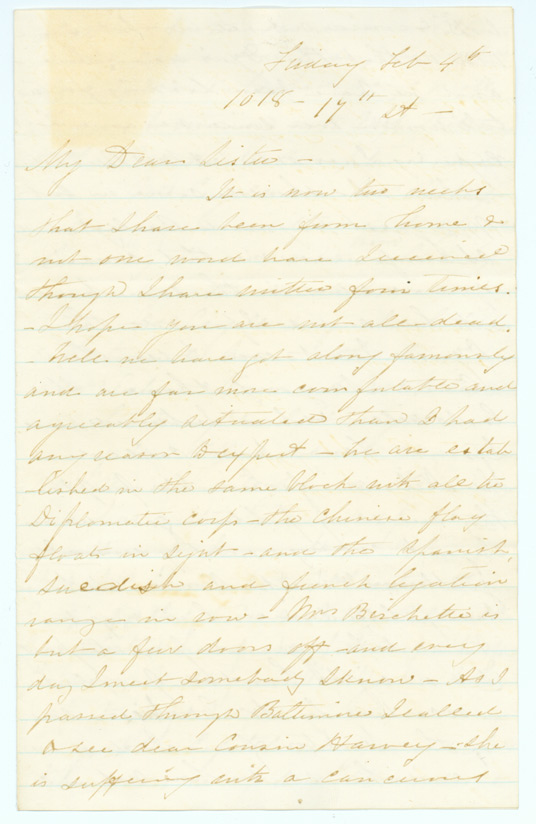 Friday Feb 4th
1618 - 17th St -
My Dear Sister -
It is now two weeks
that I have been from home &
not one word have I received
though I have written four times.
- I hope you are not all dead.
- Well we have got along famously
and are far more comfortable and
agreeably situated than I had
any reason to expect - We are estab
lished in the same block with all the
Diplomatic corps - the Chinese flag
floats in sight - and the Spanish,
Swedish and french legation
range in row - Mrs is
but a few doors off - and every
day I meet somebody I know - As I
passed through Baltimore I called
to see dear Cousin Harvey - she
is suffering with a cancerous